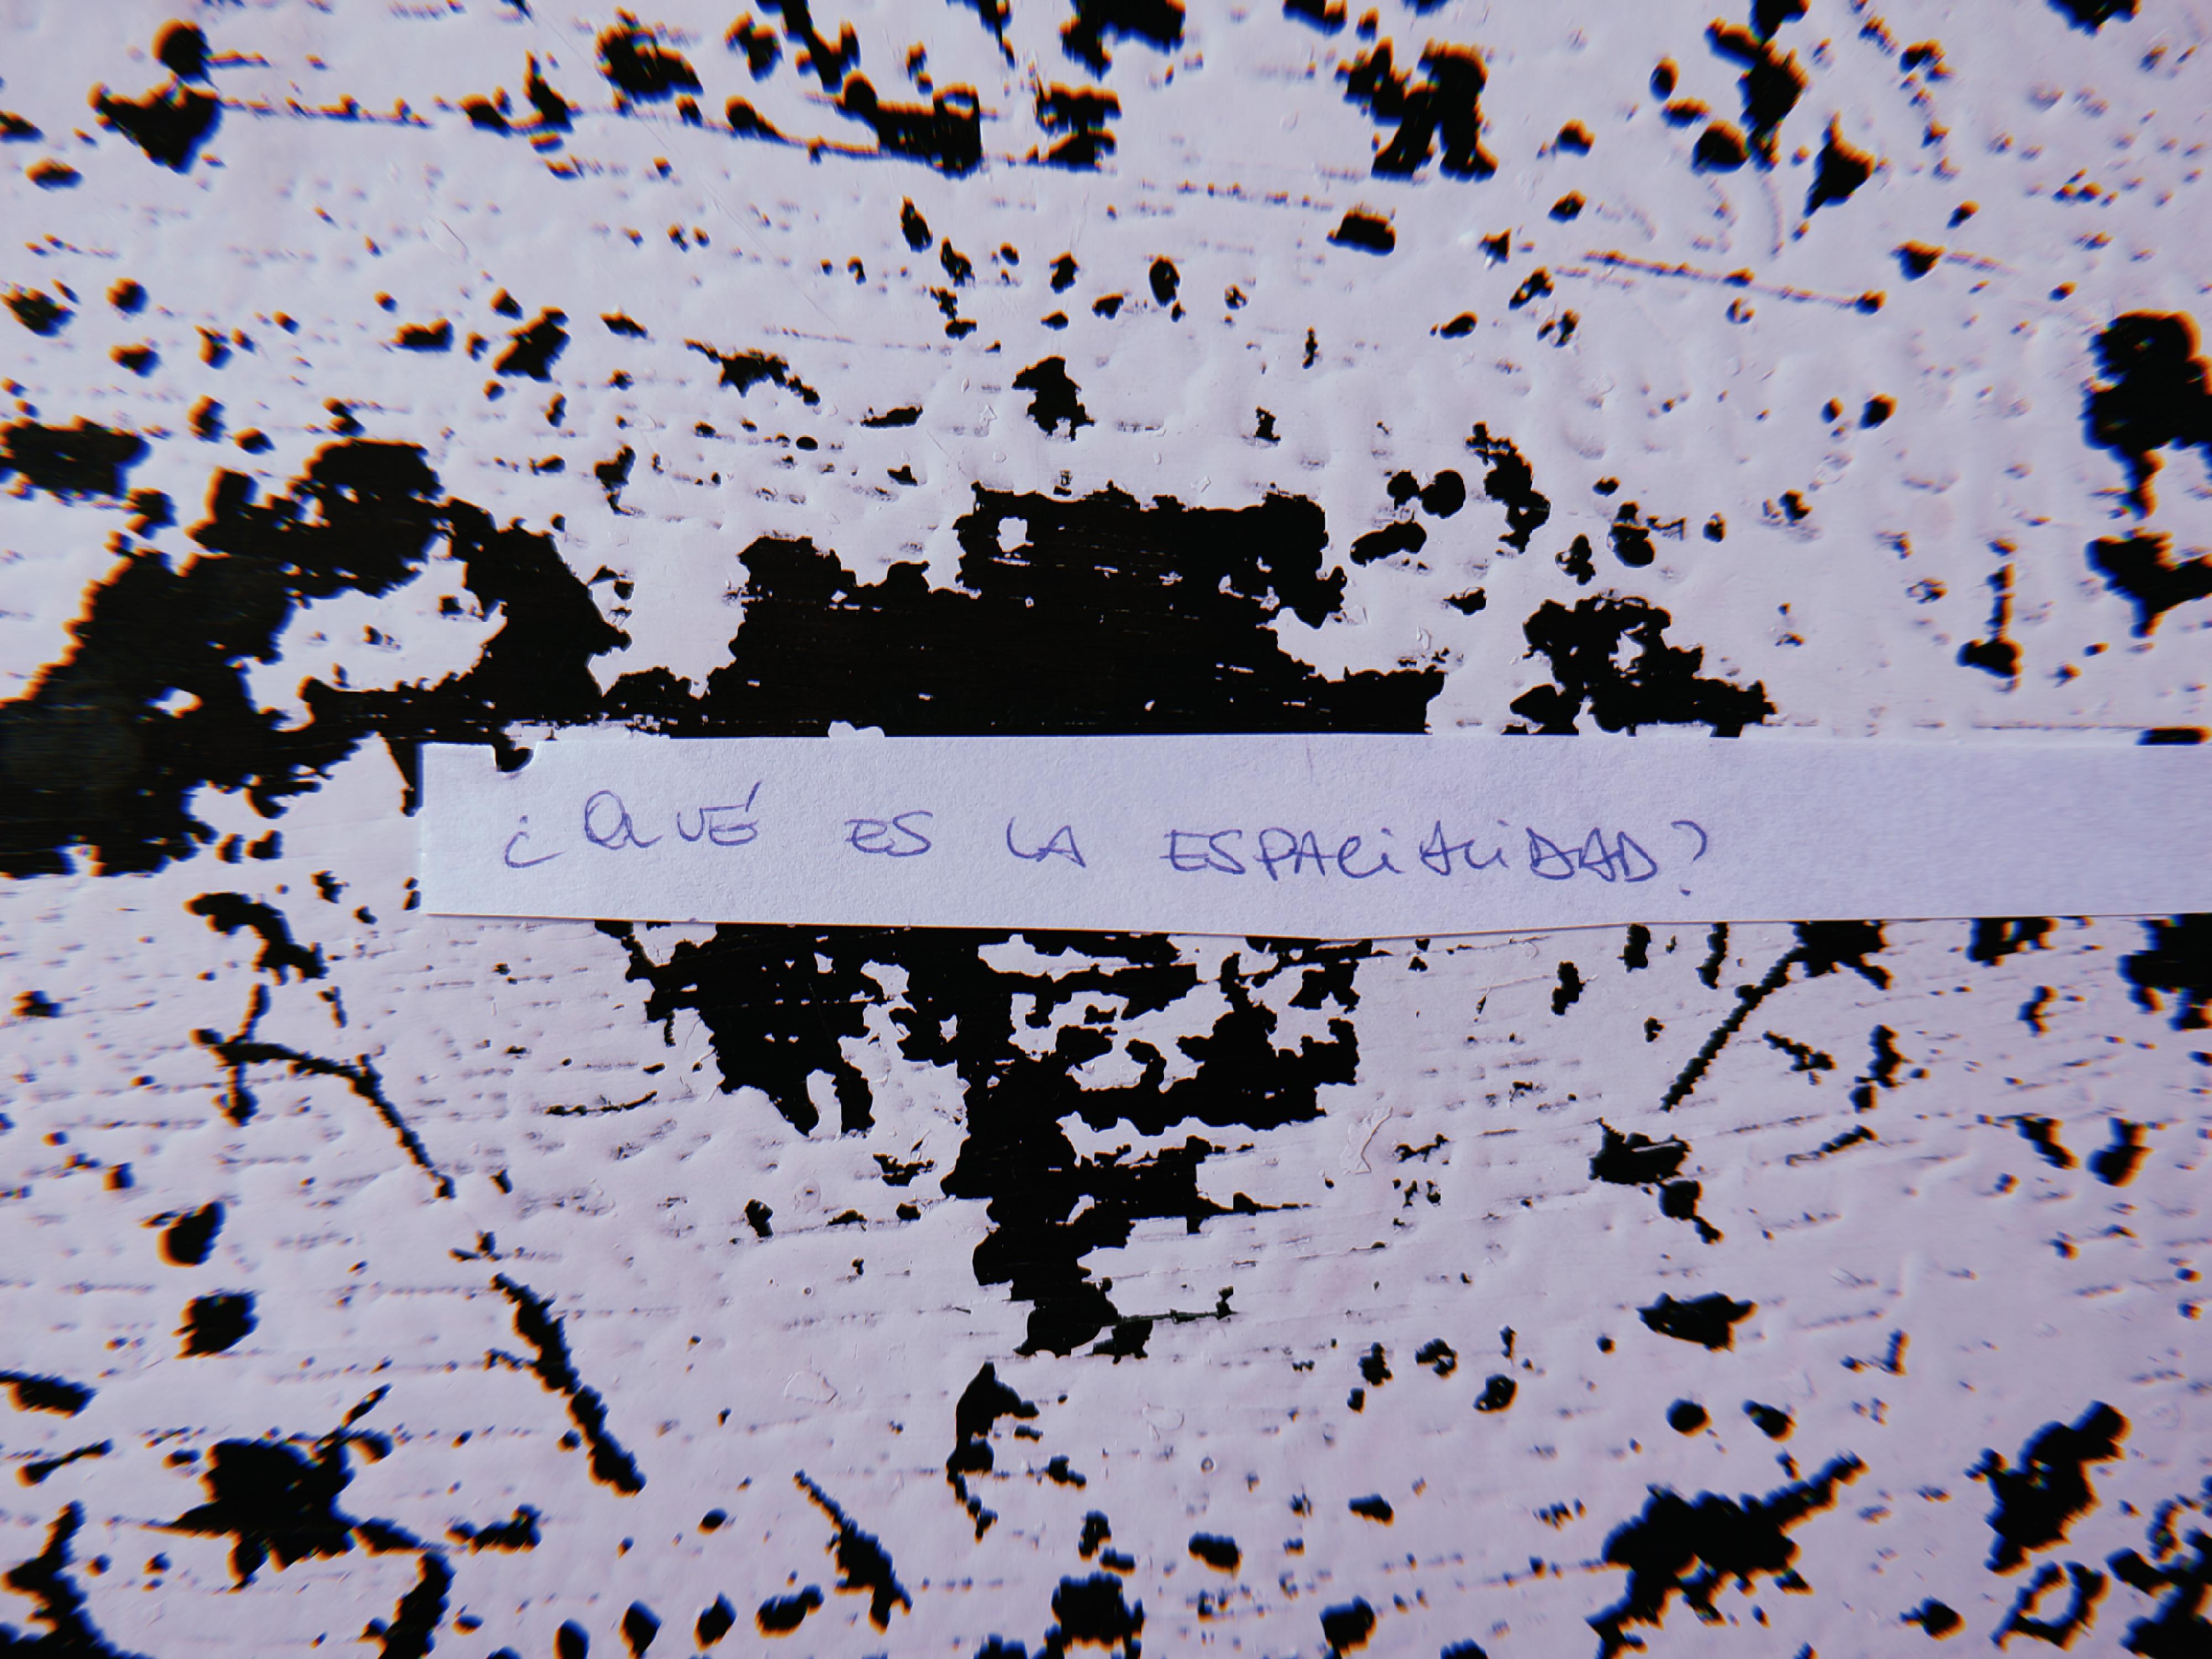 ¿QUÉ ES LA ESPACiALiDAD?